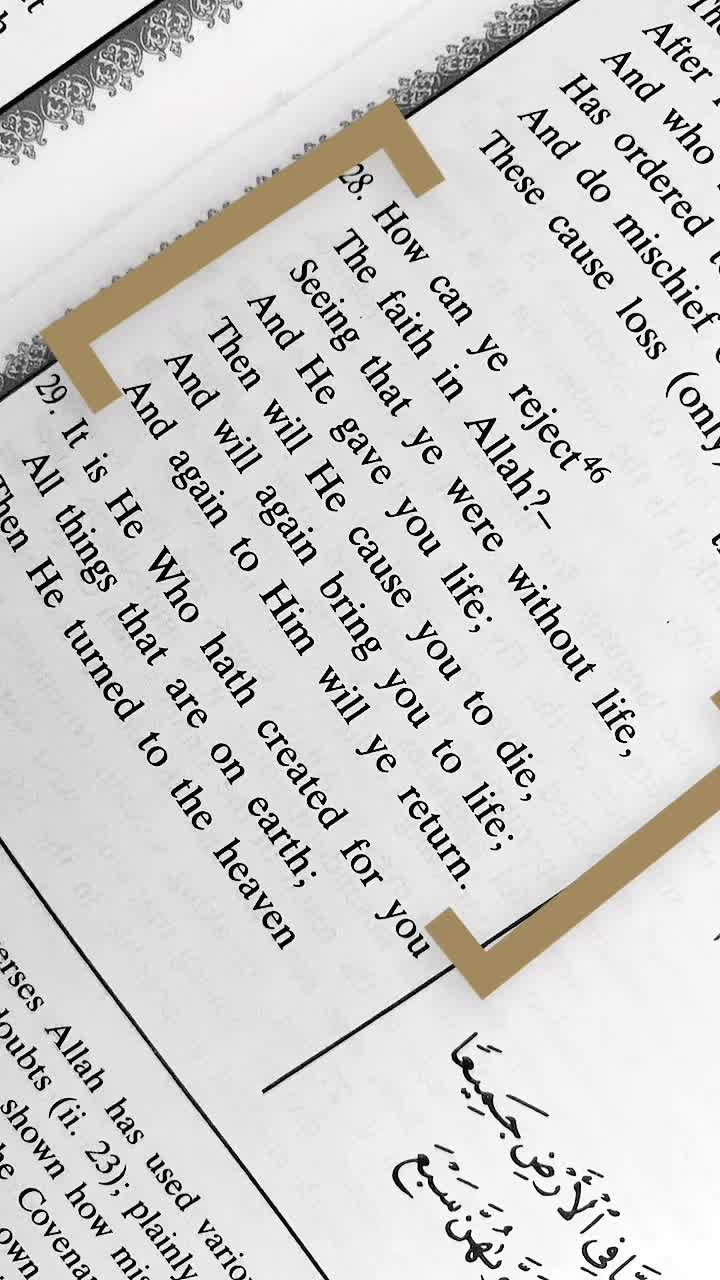 After
And who
Has ordered
And do mischief
These cause loss (only)
28. How can ye reject⁴⁶
The faith in Allah?–
Seeing that ye were without life,
And He gave you life;
Then will He cause you to die,
And will again bring you to life;
And again to Him will ye return.
29. It is He Who hath created for you
All things that are on earth;
Then He turned to the heaven
فِي ٱلْأَرْضِ جَمِيعًا
سَبْعَ
Allah has used
(ii. 23); plainly
shown how
own